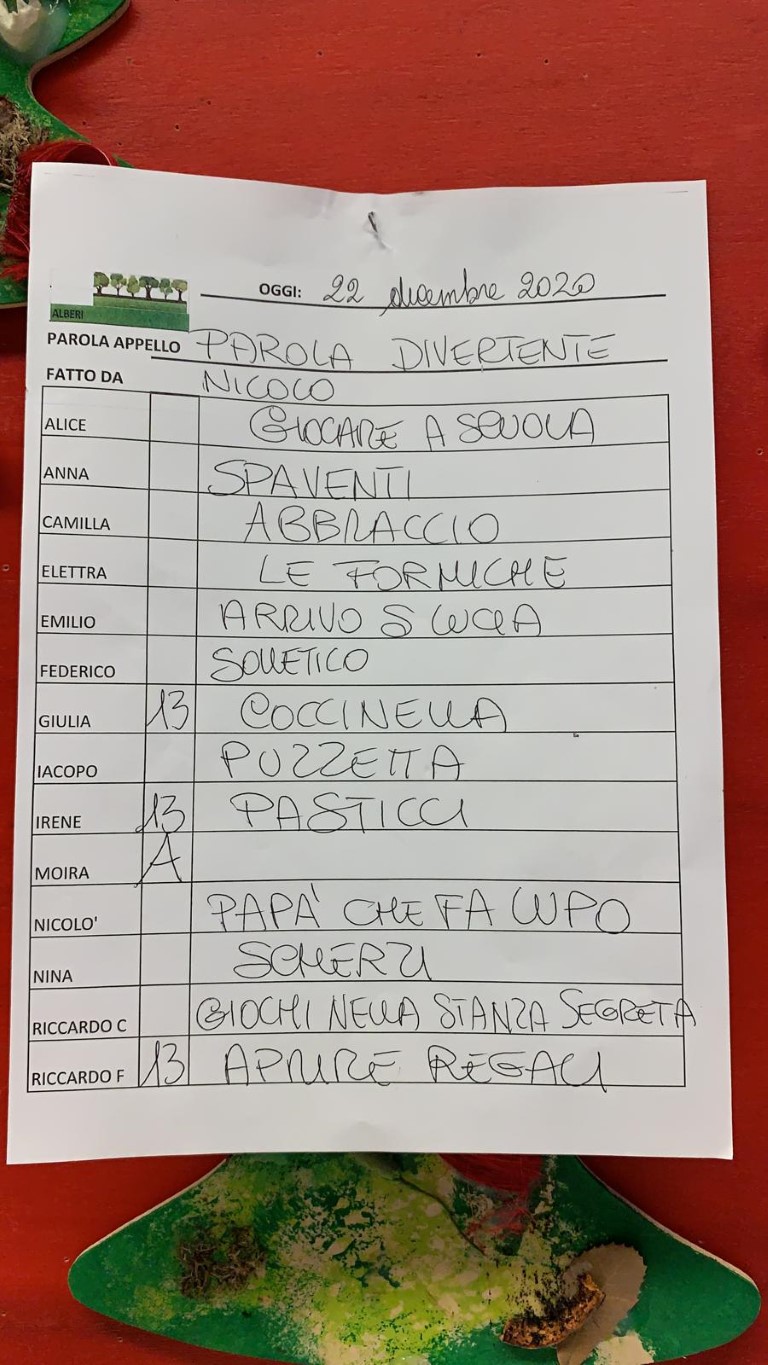 OGGI: 22 dicembre 2020
ALBERI
PAROLA APPELLO PAROLA DIVERTENTE
FATTO DA NICOLO
ALICE GIOCARE A SCUOLA
ANNA SPAVENTI
CAMILLA ABBRACCIO
ELETTRA LE FORMICHE
EMILIO ARRIVO S LUCIA
FEDERICO SOLLETICO
GIULIA 13 COCCINELLA
IACOPO PUZZETTA
IRENE 13 PASTICCI
MOIRA A
NICOLO' PAPA' CHE FA LUPO
NINA SCHERZI
RICCARDO C GIOCHI NELLA STANZA SEGRETA
RICCARDO F 13 APRIRE REGALI